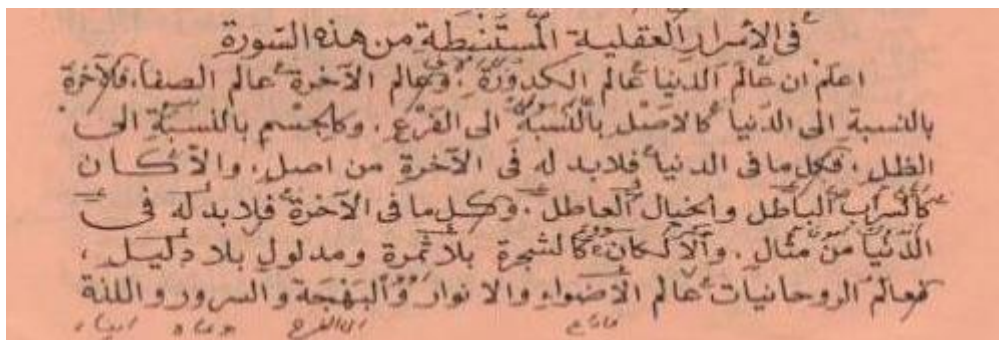 في الأسرار العقلية المستنبطة من هذه السورة
اعلم ان عالم الدنيا عالم الكدورة، وعالم الآخرة عالم الصفا، فالآخرة
بالنسبة الى الدنيا كالاصل بالنسبة الى الفرع. وكالجسم بالنسبة الى
الظل. فكل ما في الدنيا فلابد له في الآخرة من اصل. والا كان
كالسراب الباطل والخيال العاطل. وكل ما في الآخرة فلابد له في
الدنيا من مثال. والا لكان كالشجرة بلا ثمرة ومدلول بلا دليل،
فعالم الروحانيات عالم الأضواء والانوار والبهجة والسرور واللذة